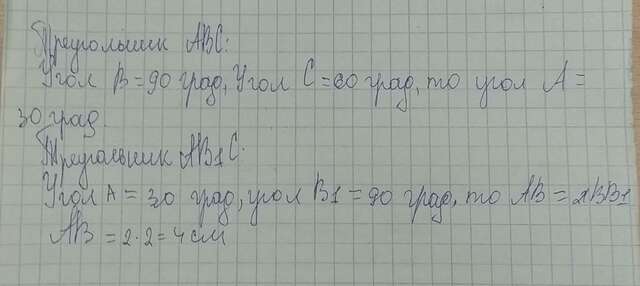 Треугольник ABC:
Угол B = 90 град, Угол C = 60 град, то угол A =
30 град.
Треугольник AB1C.
Угол A = 30 град, угол B1 = 90 град, то AB = 2BB1
AB = 2·2 = 4 см